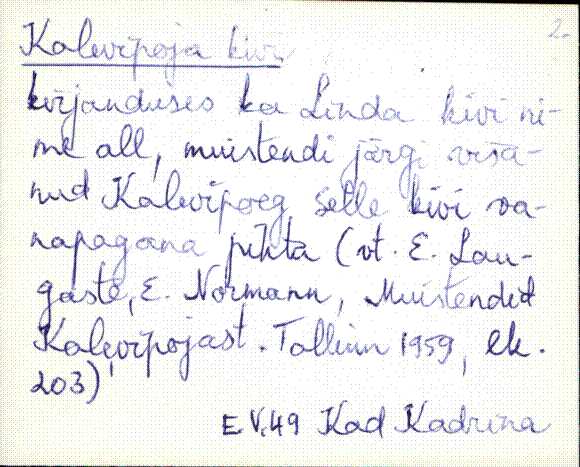 2.
Kalevipoja kivi
kirjanduses ka Linda kivi ni-
me all, muistendi järgi visa-
nud Kalevipoeg selle kivi va-
napagana pihta (vt. E. Lau-
gaste, E. Normann, Muistendid
Kalevipojast. Tallinn 1959, lk.
203).
E. V. 49 Kad Kadrina